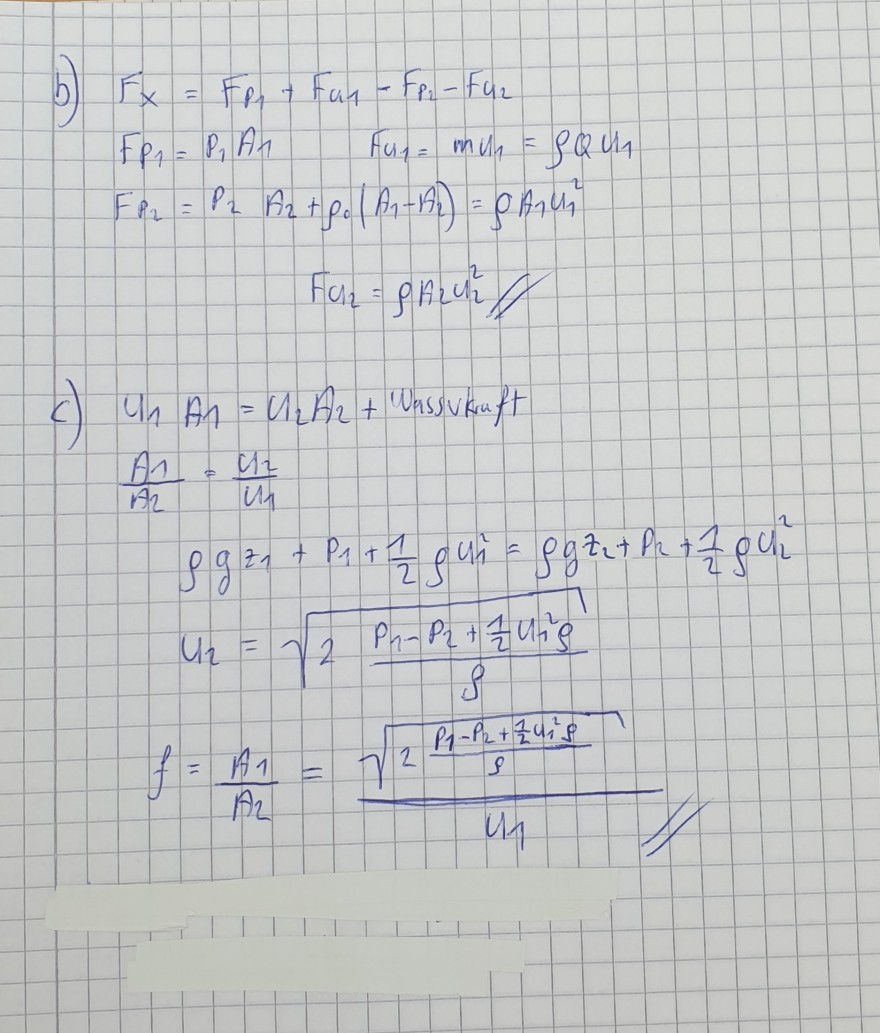 b) Fx = Fp₁ + Fu₁ - Fp₂ - Fu₂
Fp₁ = P₁ A₁ Fu₁ = mu₁ = ρQ u₁
Fp₂ = P₂ A₂ + p₀(A₁-A₂) = ρA₁u₁²
Fu₂ = ρA₂u₂² //
c) u₁ A₁ = u₂A₂ + Wasserkraft
A₁/A₂ = u₂/u₁
ρgz₁ + P₁ + 1/2 ρu₁² = ρgz₂ + P₂ + 1/2 ρu₂²
u₂ = √(2 (P₁-P₂ + 1/2 u₁²ρ)/ρ)
f = A₁/A₂ = √(2 (P₁-P₂ + 1/2 u₁²ρ)/ρ) / u₁ //